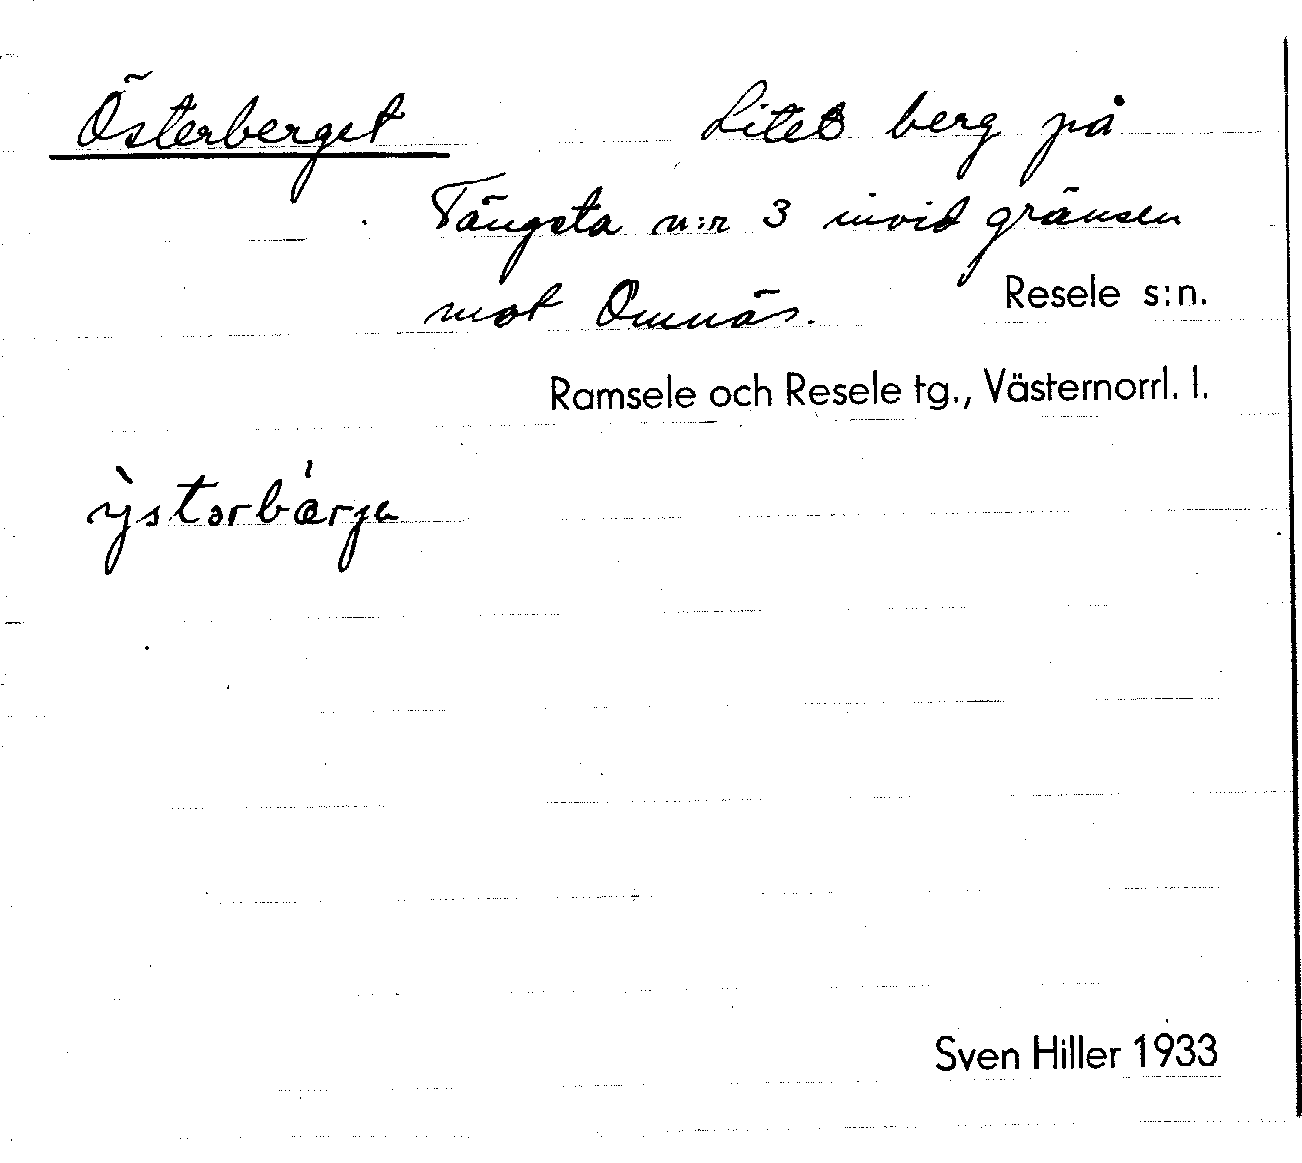 Österberget Litet berg på
Tängsta n:r 3 invid gränsen
mot Omnäs. Resele s:n.
Ramsele och Resele tg., Västernorrl. l.
ỳstərbárja
Sven Hiller 1933